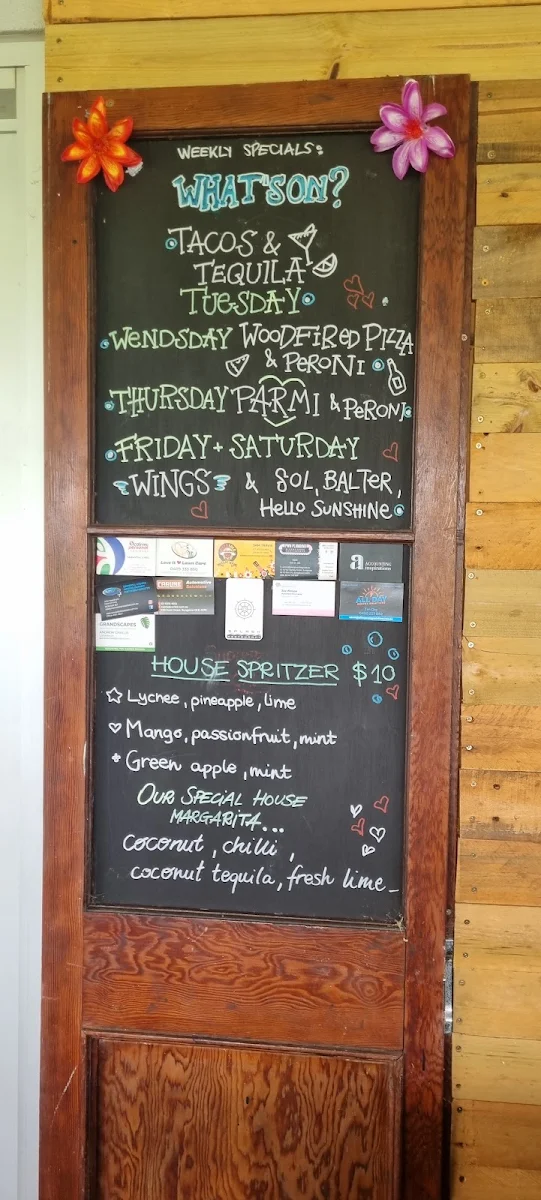 WEEKLY SPECIALS:
WHAT'S ON?
TACOS &
TEQUILA
TUESDAY
WENDSDAY WOODFIRED PIZZA
& PERONI
THURSDAY PARMI & PERONI
FRIDAY + SATURDAY
WINGS & SOL, BALTER,
HELLO SUNSHINE
HOUSE SPRITZER $10
Lychee, pineapple, lime
Mango, passionfruit, mint
Green apple, mint
OUR SPECIAL HOUSE
MARGARITA...
coconut, chilli,
coconut tequila, fresh lime